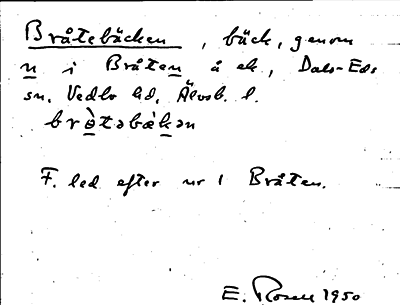 Bråtebäcken, bäck, genom
n i Bråten å ek, Dals-Eds
sn. Vedbo hd, Älvsb. l.
brɵ̀təbæ̀kən
F. led efter nr 1 Bråten.
E. Rosell 1950